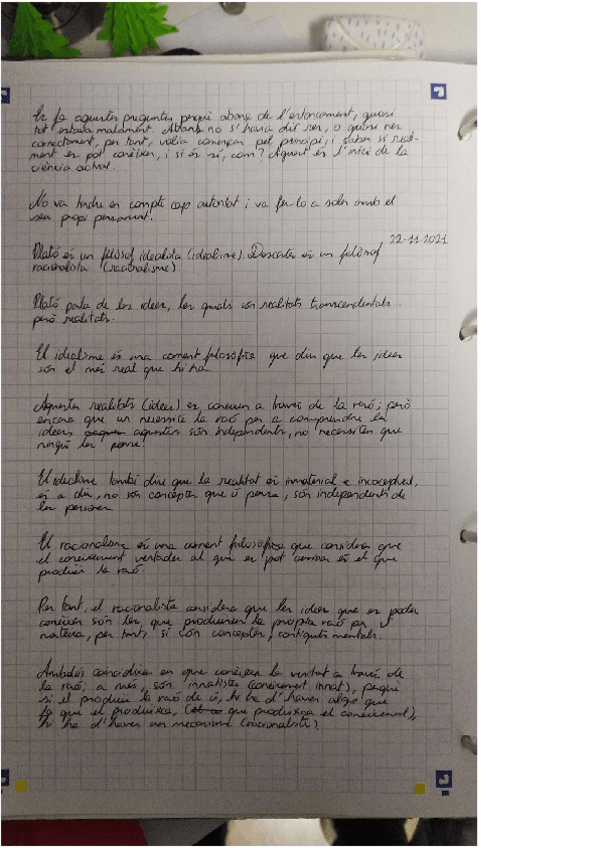 Es fa aquestes preguntes perquè abans de l'estancament, quasi
tot estaba malament. Abans no s'havia dit res, o quasi res
correctament, per tant, volia començar pel principi, i saber si real-
ment es pot conèixer, i si és sí, com? Aquest és l'inici de la
ciència actual.
No va tindre en compte cap autoritat i va fer-lo a soles amb el
seu propi pensament.
22-11-2021
Plató és un filòsof idealista (idealisme). Descartes és un filòsof
racionalista (racionalisme)
Plató parla de les idees, les quals són realitats transcendentals
però realitats.
El idealisme és una corrent filosòfica que diu que les idees
són el més real que hi ha.
Aquestes realitats (idees) es coneixen a través de la raó; però
encara que un necessite la raó per a comprendre les
idees aquestes són independents, no necessiten que
ningú les pense.
El idealisme també diu que la realitat és inmaterial e inconceptual,
és a dir, no són conceptes que ú pensa, són independents de
les persones
El racionalisme és una corrent filosòfica que considera que
el coneixement vertader al qui es pot arribar és el que
produix la raó.
Per tant, el racionalista considera que les idees que es poden
conèixer són les que produeixen la pròpia raó per sí
mateixa, per tant, sí són conceptes, continguts mentals.
Ambdós coincidixen en que coneixen la veritat a través de
la raó; a més, són innatistes (coneixement innat), perquè
si el produix la raó de ú, hi ha d'haver algo que
fa que el produïxca, ( que produïxca el coneixement),
hi ha d'haver un mecanisme (racionalista)